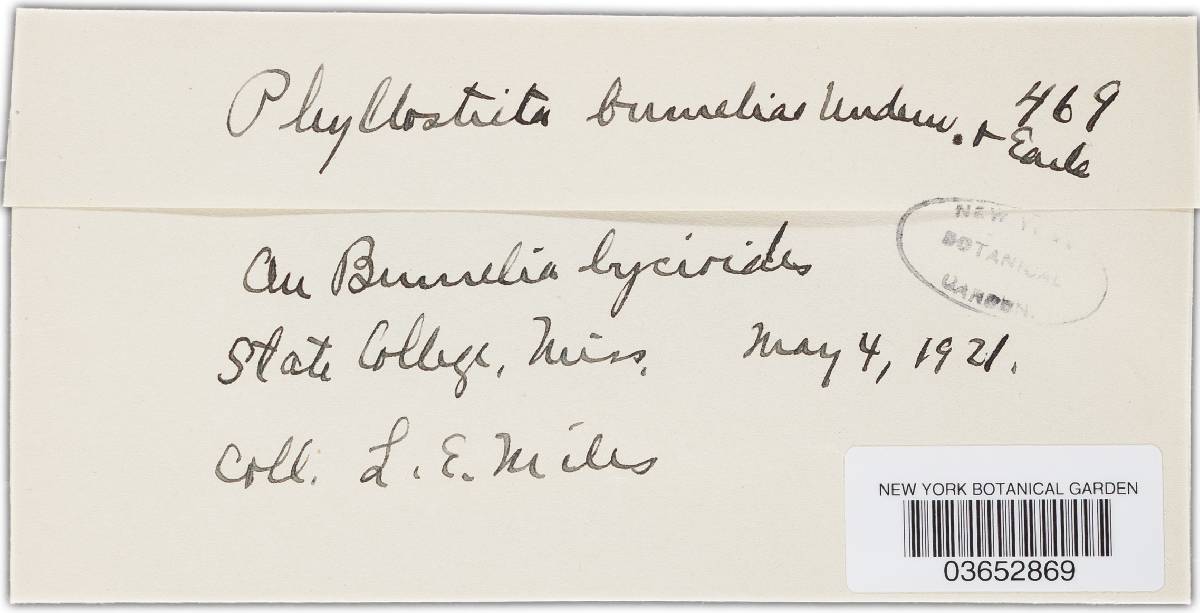 Phyllostricta bumeliae Underw. & Earle 469
On Bumelia lycioides
State College, Miss. May 4, 1921.
Coll. L. E. Miles
NEW YORK
BOTANICAL
GARDEN.
NEW YORK BOTANICAL GARDEN
03652869